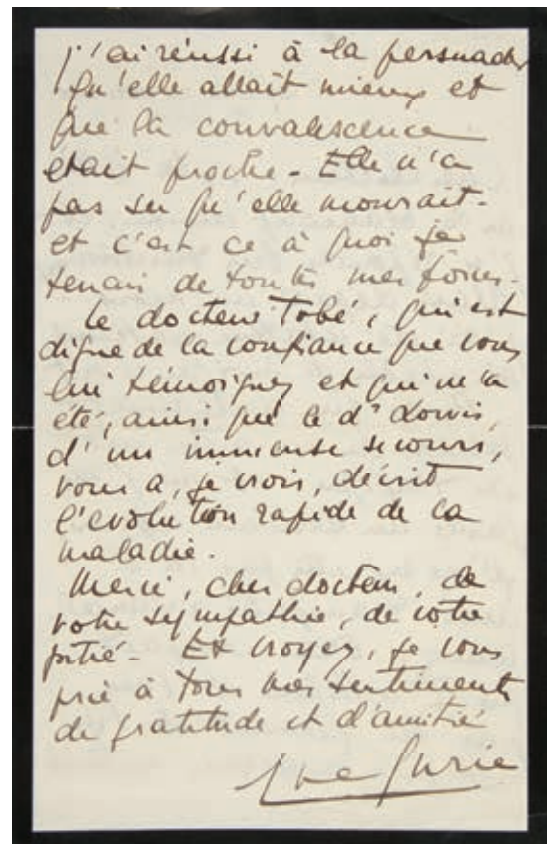 j'ai réussi à la persuader
qu'elle allait mieux et
que la convalescence
était proche - Elle n'a
pas su qu'elle mourait -
et c'est ce à quoi je
tenais de toutes mes forces -
Le docteur Tobé, qui est
digne de la confiance que vous
lui témoignez et qui m'a
été, ainsi que le dr Lowis,
d'un immense secours,
vous a, je crois, décrit
l'évolution rapide de la
maladie.
Merci, cher docteur, de
votre sympathie, de votre
pitié - Et croyez, je vous
prie à tous mes sentiments
de gratitude et d'amitié
Eve Curie